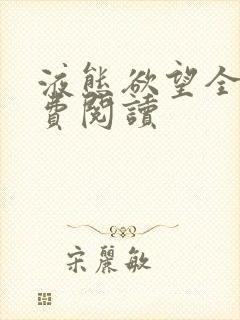 液態欲望全
費閱讀
宋麗敏